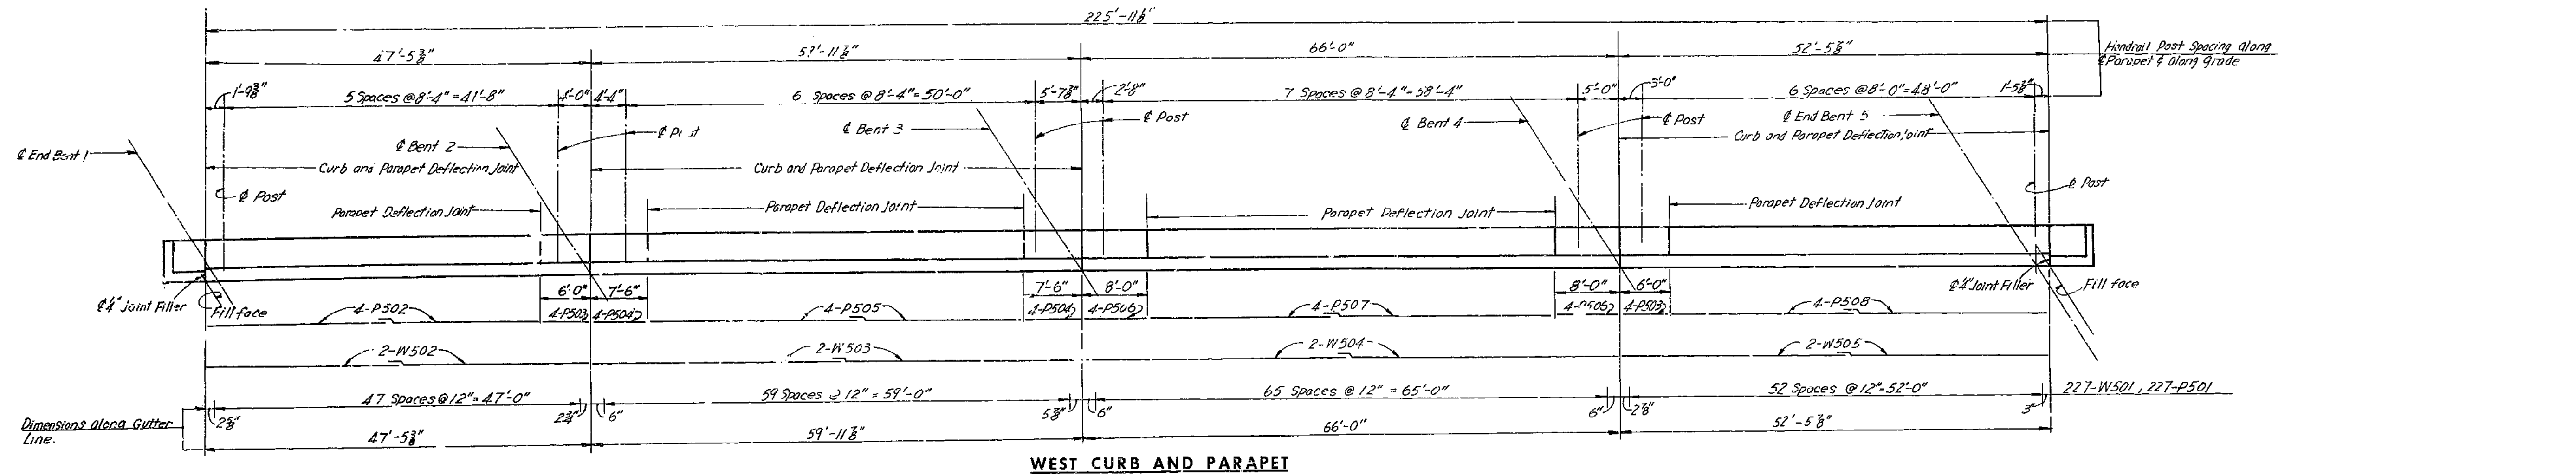 225'-11⅛"
47'-5⅜"
59'-11⅞"
66'-0"
52'-5⅞"
Handrail Post Spacing along
℄ Parapet & along grade
1'-9⅜"
5 Spaces @ 8'-4" = 41'-8"
4'-0"
4'-4"
6 Spaces @ 8'-4" = 50'-0"
5'-7⅞"
2'-8"
7 Spaces @ 8'-4" = 58'-4"
5'-0"
3'-0"
6 Spaces @ 8'-0" = 48'-0"
1'-5⅞"
℄ End Bent 1
℄ Bent 2
℄ Post
℄ Bent 3
℄ Post
℄ Bent 4
℄ Post
℄ End Bent 5
Curb and Parapet Deflection Joint
Curb and Parapet Deflection Joint
Curb and Parapet Deflection Joint
℄ Post
℄ Post
Parapet Deflection Joint
Parapet Deflection Joint
Parapet Deflection Joint
Parapet Deflection Joint
℄ ¼" Joint Filler
Fill face
6'-0"
7'-6"
7'-6"
8'-0"
8'-0"
6'-0"
℄ ¼" Joint Filler
Fill face
4-P502
4-P503
4-P504
4-P505
4-P504
4-P506
4-P507
4-P506
4-P503
4-P508
2-W502
2-W503
2-W504
2-W505
47 Spaces @ 12" = 47'-0"
59 Spaces @ 12" = 59'-0"
65 Spaces @ 12" = 65'-0"
52 Spaces @ 12" = 52'-0"
227-W501, 227-P501
2⅝"
2¾"
6"
5⅞"
6"
6"
2⅞"
3"
Dimensions along Gutter
Line.
47'-5⅜"
59'-11⅞"
66'-0"
52'-5⅞"
WEST CURB AND PARAPET